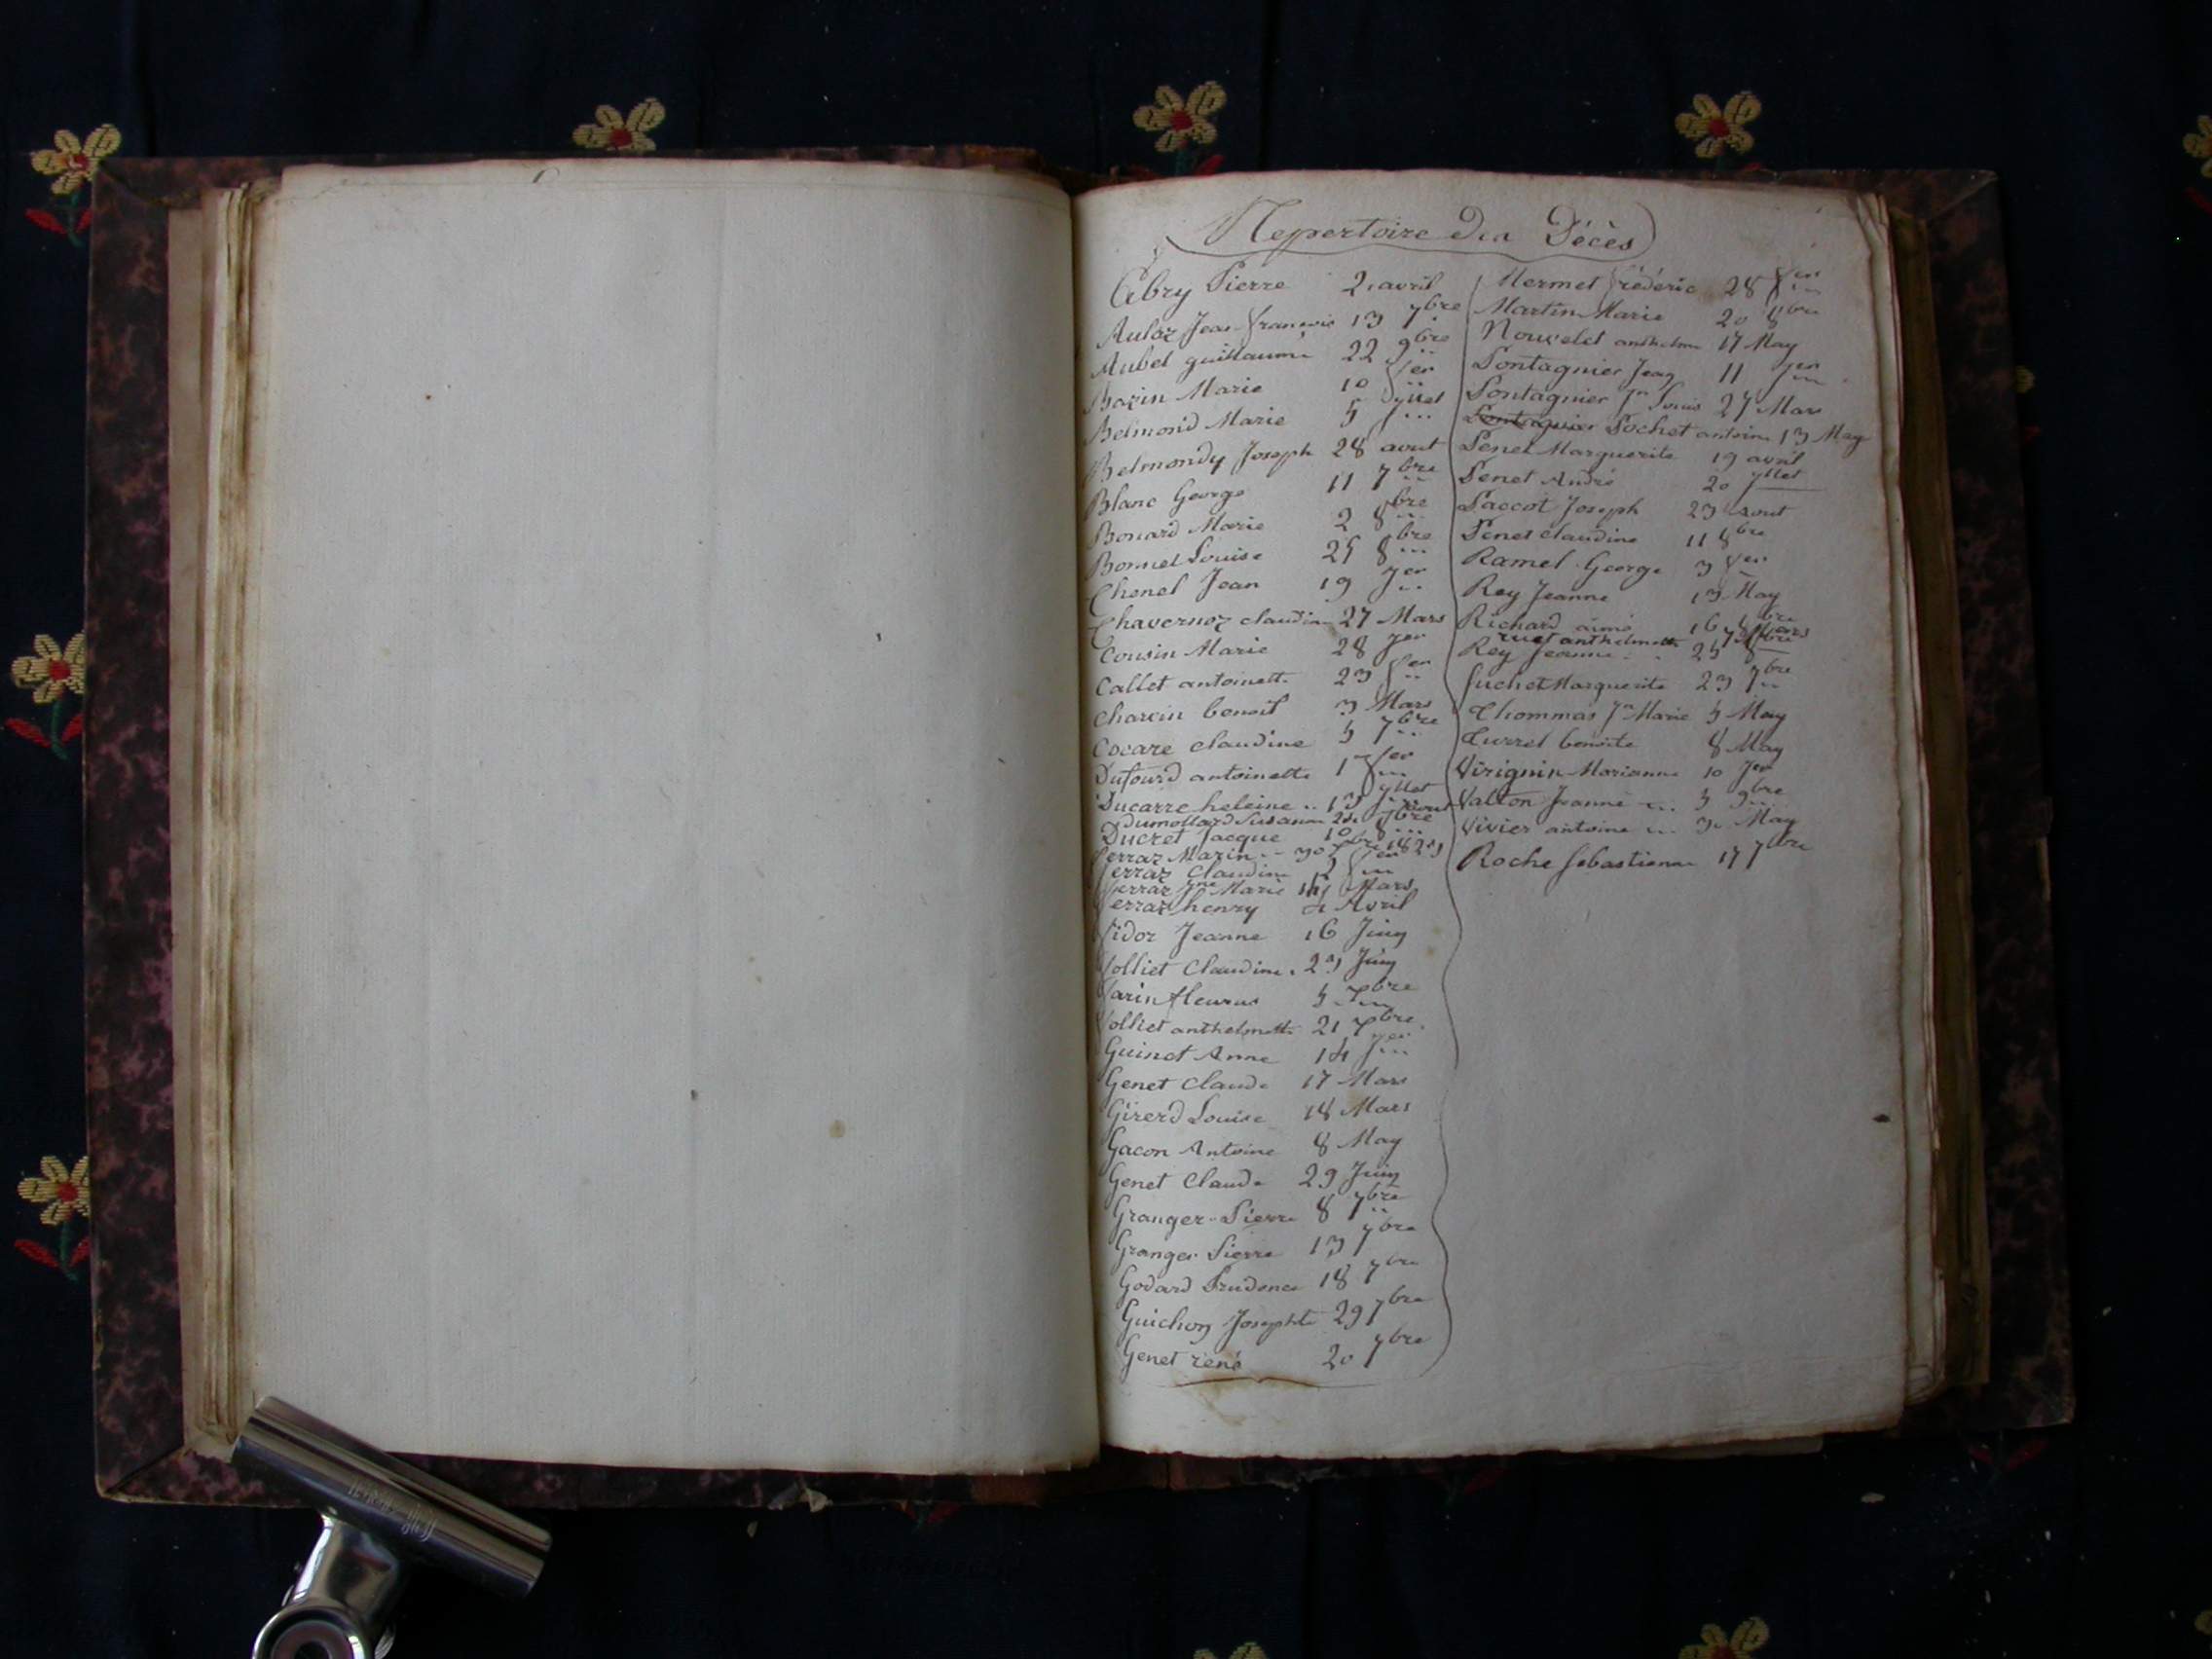 Repertoire des Décès
Abry Pierre 21 avril
Aulaz Jean françois 13 7bre
Aubel guillaume 22 9bre
Bazin Marie 10 fer
Belmond Marie 5 jllet
Belmondy Joseph 28 aout
Blanc George 11 7bre
Bonard Marie 2 8bre
Bonnet Louise 25 8bre
Chenel Jean 19 Jer
Chavernoz claudine 27 Mars
Cousin Marie 28 Jer
Callet antoinette 23 fer
Charcin benoit 3 Mars
Cocare claudine 5 7bre
Dufourd antoinette 1 fer
Ducarre heleine 13 jllet
Dumollard Susanne aout
Ducret Jacque 10 8bre
ferraz Marin 30
ferraz Claudine 2 fer
ferraz Jne Marie Mars
ferraz henry 4 Avril
fidor Jeanne 16 Juin
folliet Claudine 23 Juin
farin fleurus 5 7bre
folliet anthelmette 21 7bre
Guinet Anne 14 Jer
Genet Claude 17 Mars
Girerd Louise 18 Mars
Gacon Antoine 8 May
Genet Claude 29 Juin
Granger Pierre 8 7bre
Granger Pierre 13 7bre
Godard Prudence 18 7bre
Guichon Josephte 29 7bre
Genet réné 20 7bre
Mermet frédéric 28 fer
Martin Marie 20 8bre
Nouvelet anthelme 17 May
Pontagnier Jean 11 Jer
Pontagnier Jn Louis 27 Mars
Pontagnier Pochet antoine 13 May
Penet Marguerite 19 avril
Penet André 20 jllet
Paccot Joseph 23 aout
Penet claudine 11 8bre
Ramel George 3 fer
Rey Jeanne 13 May
Richard aimé 16
ruet anthelmette 7 Mars
Rey Jeanne 25
Suchet Marguerite 23 7bre
Thommas Jn Marie 5 May
Turrel benoite 8 May
Virignin Marianne 10 Jer
Valton Jeanne 5 9bre
Vivier antoine May
Roche Sebastienne 17 7bre